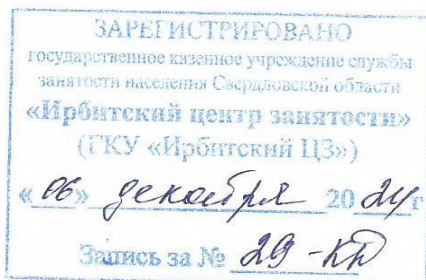 ЗАРЕГИСТРИРОВАНО
государственное казенное учреждение службы
занятости населения Свердловской области
«Ирбитский центр занятости»
(ГКУ «Ирбитский ЦЗ»)
«06» декабря 2024г
Запись за № 29-КД